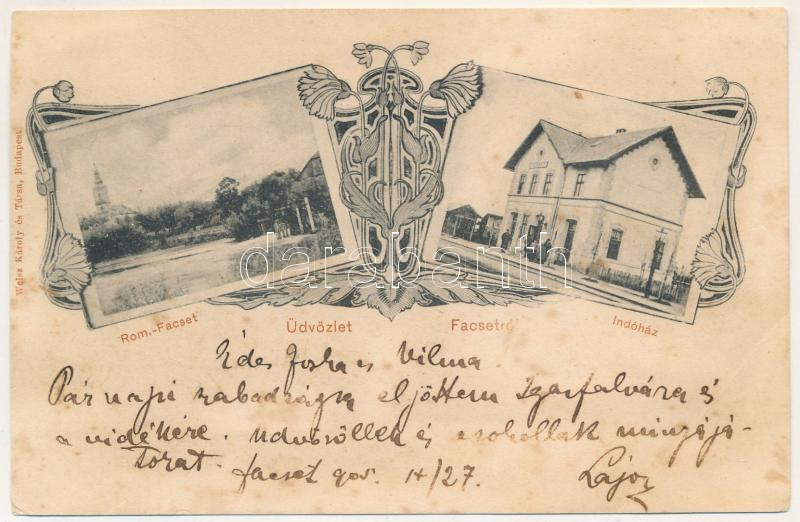 Weisz Károly és Társa, Budapest
darabanth
Rom.-Facset
Üdvözlet
Facsetről
Indóház
Édes Joska és Vilma.
Pár napi szabadságra eljöttem Igazfalvára és
a vidékére. Üdvözöllek és csókollak
Facset 4/27. Lajos